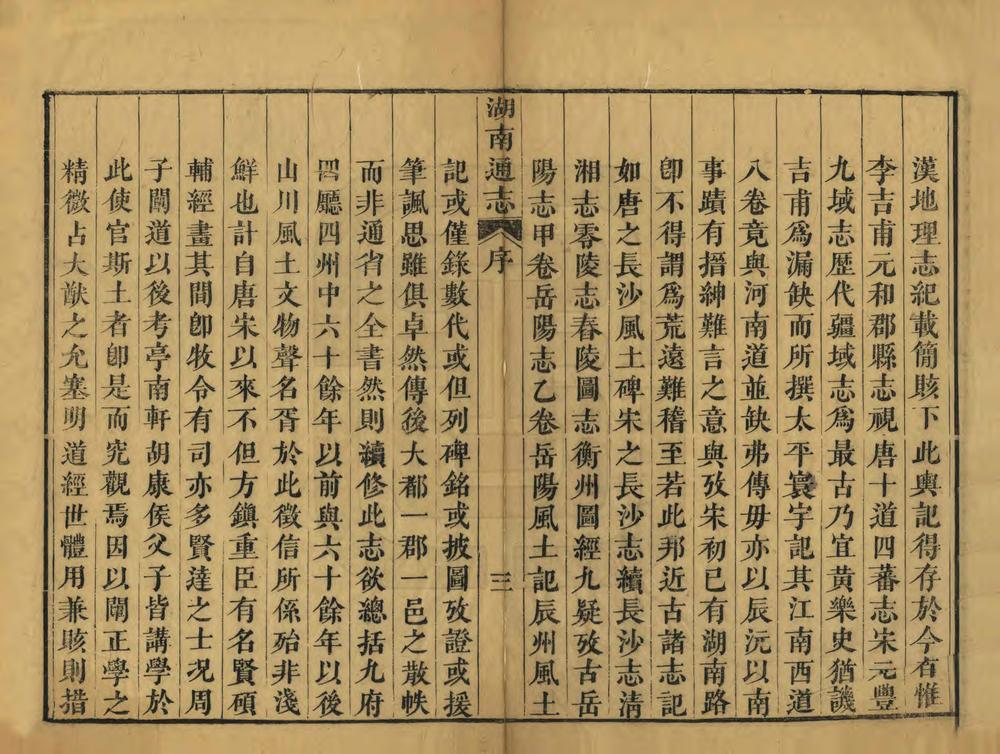 漢地理志紀載簡賅下此輿記得存於今者惟
李吉甫元和郡縣志視唐十道四蕃志宋元豐
九域志歷代疆域志爲最古乃宜黃樂史猶譏
吉甫爲漏缺而所撰太平寰宇記其江南西道
八卷竟與河南道並缺弗傳毋亦以辰沅以南
事蹟有搢紳難言之意與攷宋初已有湖南路
卽不得謂爲荒遠難稽至若此邦近古諸志記
如唐之長沙風土碑宋之長沙志續長沙志清
湘志零陵志舂陵圖志衡州圖經九疑攷古岳
陽志甲卷岳陽志乙卷岳陽風土記辰州風土
湖南通志 序 三
記或僅錄數代或但列碑銘或披圖攷證或援
筆諷思雖俱卓然傳後大都一郡一邑之散帙
而非通省之全書然則續修此志欲總括九府
四廳四州中六十餘年以前與六十餘年以後
山川風土文物聲名胥於此徵信所係殆非淺
鮮也計自唐宋以來不但方鎭重臣有名賢碩
輔經畫其間卽牧令有司亦多賢達之士况周
子闡道以後考亭南軒胡康侯父子皆講學於
此使官斯土者卽是而究觀焉因以闡正學之
精微占大猷之允塞明道經世體用兼賅則措